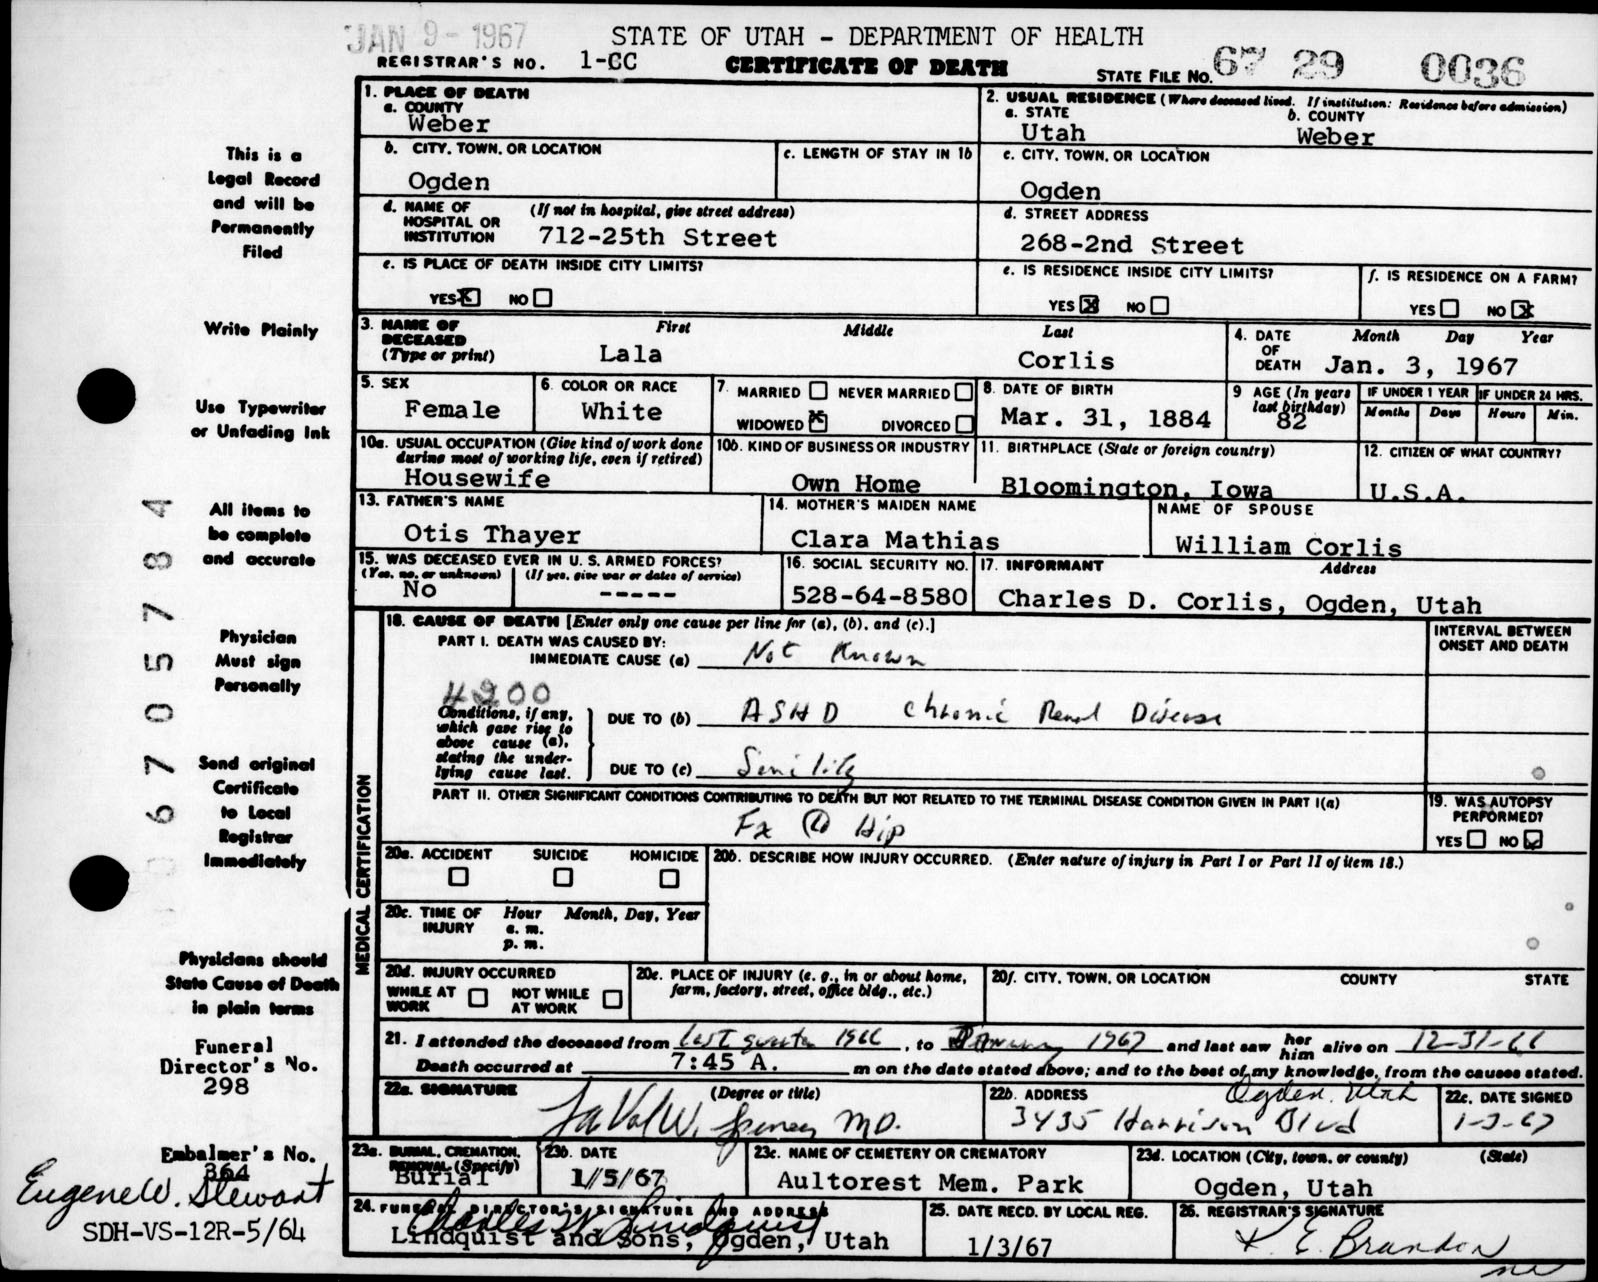 JAN 9 - 1967
STATE OF UTAH - DEPARTMENT OF HEALTH
REGISTRAR'S NO. 1-CC
CERTIFICATE OF DEATH
STATE FILE NO. 67 29 0036
1. PLACE OF DEATH
a. COUNTY
Weber
2. USUAL RESIDENCE (Where deceased lived. If institution: Residence before admission)
a. STATE b. COUNTY
Utah Weber
b. CITY, TOWN, OR LOCATION
Ogden
c. LENGTH OF STAY IN 1b
c. CITY, TOWN, OR LOCATION
Ogden
d. NAME OF HOSPITAL OR INSTITUTION (If not in hospital, give street address)
712-25th Street
d. STREET ADDRESS
268-2nd Street
e. IS PLACE OF DEATH INSIDE CITY LIMITS?
YES X NO
e. IS RESIDENCE INSIDE CITY LIMITS?
YES X NO
f. IS RESIDENCE ON A FARM?
YES NO X
3. NAME OF DECEASED (Type or print)
First Middle Last
Lala Corlis
4. DATE OF DEATH Month Day Year
Jan. 3, 1967
5. SEX
Female
6. COLOR OR RACE
White
7. MARRIED NEVER MARRIED
WIDOWED X DIVORCED
8. DATE OF BIRTH
Mar. 31, 1884
9 AGE (In years last birthday)
82
IF UNDER 1 YEAR
Months Days
IF UNDER 24 HRS.
Hours Min.
10a. USUAL OCCUPATION (Give kind of work done during most of working life, even if retired)
Housewife
10b. KIND OF BUSINESS OR INDUSTRY
Own Home
11. BIRTHPLACE (State or foreign country)
Bloomington, Iowa
12. CITIZEN OF WHAT COUNTRY?
U.S.A.
13. FATHER'S NAME
Otis Thayer
14. MOTHER'S MAIDEN NAME
Clara Mathias
NAME OF SPOUSE
William Corlis
15. WAS DECEASED EVER IN U. S. ARMED FORCES?
(Yes, no, or unknown) (If yes, give war or dates of service)
No -----
16. SOCIAL SECURITY NO.
528-64-8580
17. INFORMANT Address
Charles D. Corlis, Ogden, Utah
MEDICAL CERTIFICATION
18. CAUSE OF DEATH [Enter only one cause per line for (a), (b), and (c).]
PART I. DEATH WAS CAUSED BY:
IMMEDIATE CAUSE (a) Not Known
INTERVAL BETWEEN ONSET AND DEATH
4200
Conditions, if any, which gave rise to above cause (a), stating the underlying cause last.
DUE TO (b) ASHD Chronic Renal Disease
DUE TO (c) Senility
PART II. OTHER SIGNIFICANT CONDITIONS CONTRIBUTING TO DEATH BUT NOT RELATED TO THE TERMINAL DISEASE CONDITION GIVEN IN PART I(a)
Fx Hip
19. WAS AUTOPSY PERFORMED?
YES NO
20a. ACCIDENT SUICIDE HOMICIDE
20b. DESCRIBE HOW INJURY OCCURRED. (Enter nature of injury in Part I or Part II of item 18.)
20c. TIME OF INJURY Hour Month, Day, Year
a. m.
p. m.
20d. INJURY OCCURRED
WHILE AT WORK NOT WHILE AT WORK
20e. PLACE OF INJURY (e. g., in or about home, farm, factory, street, office bldg., etc.)
20f. CITY, TOWN, OR LOCATION COUNTY STATE
21. I attended the deceased from last quarter 1966, to January 1967 and last saw her him alive on 12-31-66
Death occurred at 7:45 A. m on the date stated above; and to the best of my knowledge, from the causes stated.
22a. SIGNATURE (Degree or title)
M.D.
22b. ADDRESS
Ogden, Utah
3435 Harrison Blvd
22c. DATE SIGNED
1-3-67
23a. BURIAL, CREMATION, REMOVAL (Specify)
Burial
23b. DATE
1/5/67
23c. NAME OF CEMETERY OR CREMATORY
Aultorest Mem. Park
23d. LOCATION (City, town, or county) (State)
Ogden, Utah
24. FUNERAL DIRECTOR'S SIGNATURE AND ADDRESS
Charles W. Lindquist
Lindquist and Sons, Ogden, Utah
25. DATE RECD. BY LOCAL REG.
1/3/67
26. REGISTRAR'S SIGNATURE
E. Brandon
This is a
Legal Record
and will be
Permanently
Filed
Write Plainly
Use Typewriter
or Unfading Ink
All items to
be complete
and accurate
Physician
Must sign
Personally
Send original
Certificate
to Local
Registrar
Immediately
Physicians should
State Cause of Death
in plain terms
Funeral
Director's No.
298
Embalmer's No.
364
Eugene W. Stewart
SDH-VS-12R-5/64
6705784